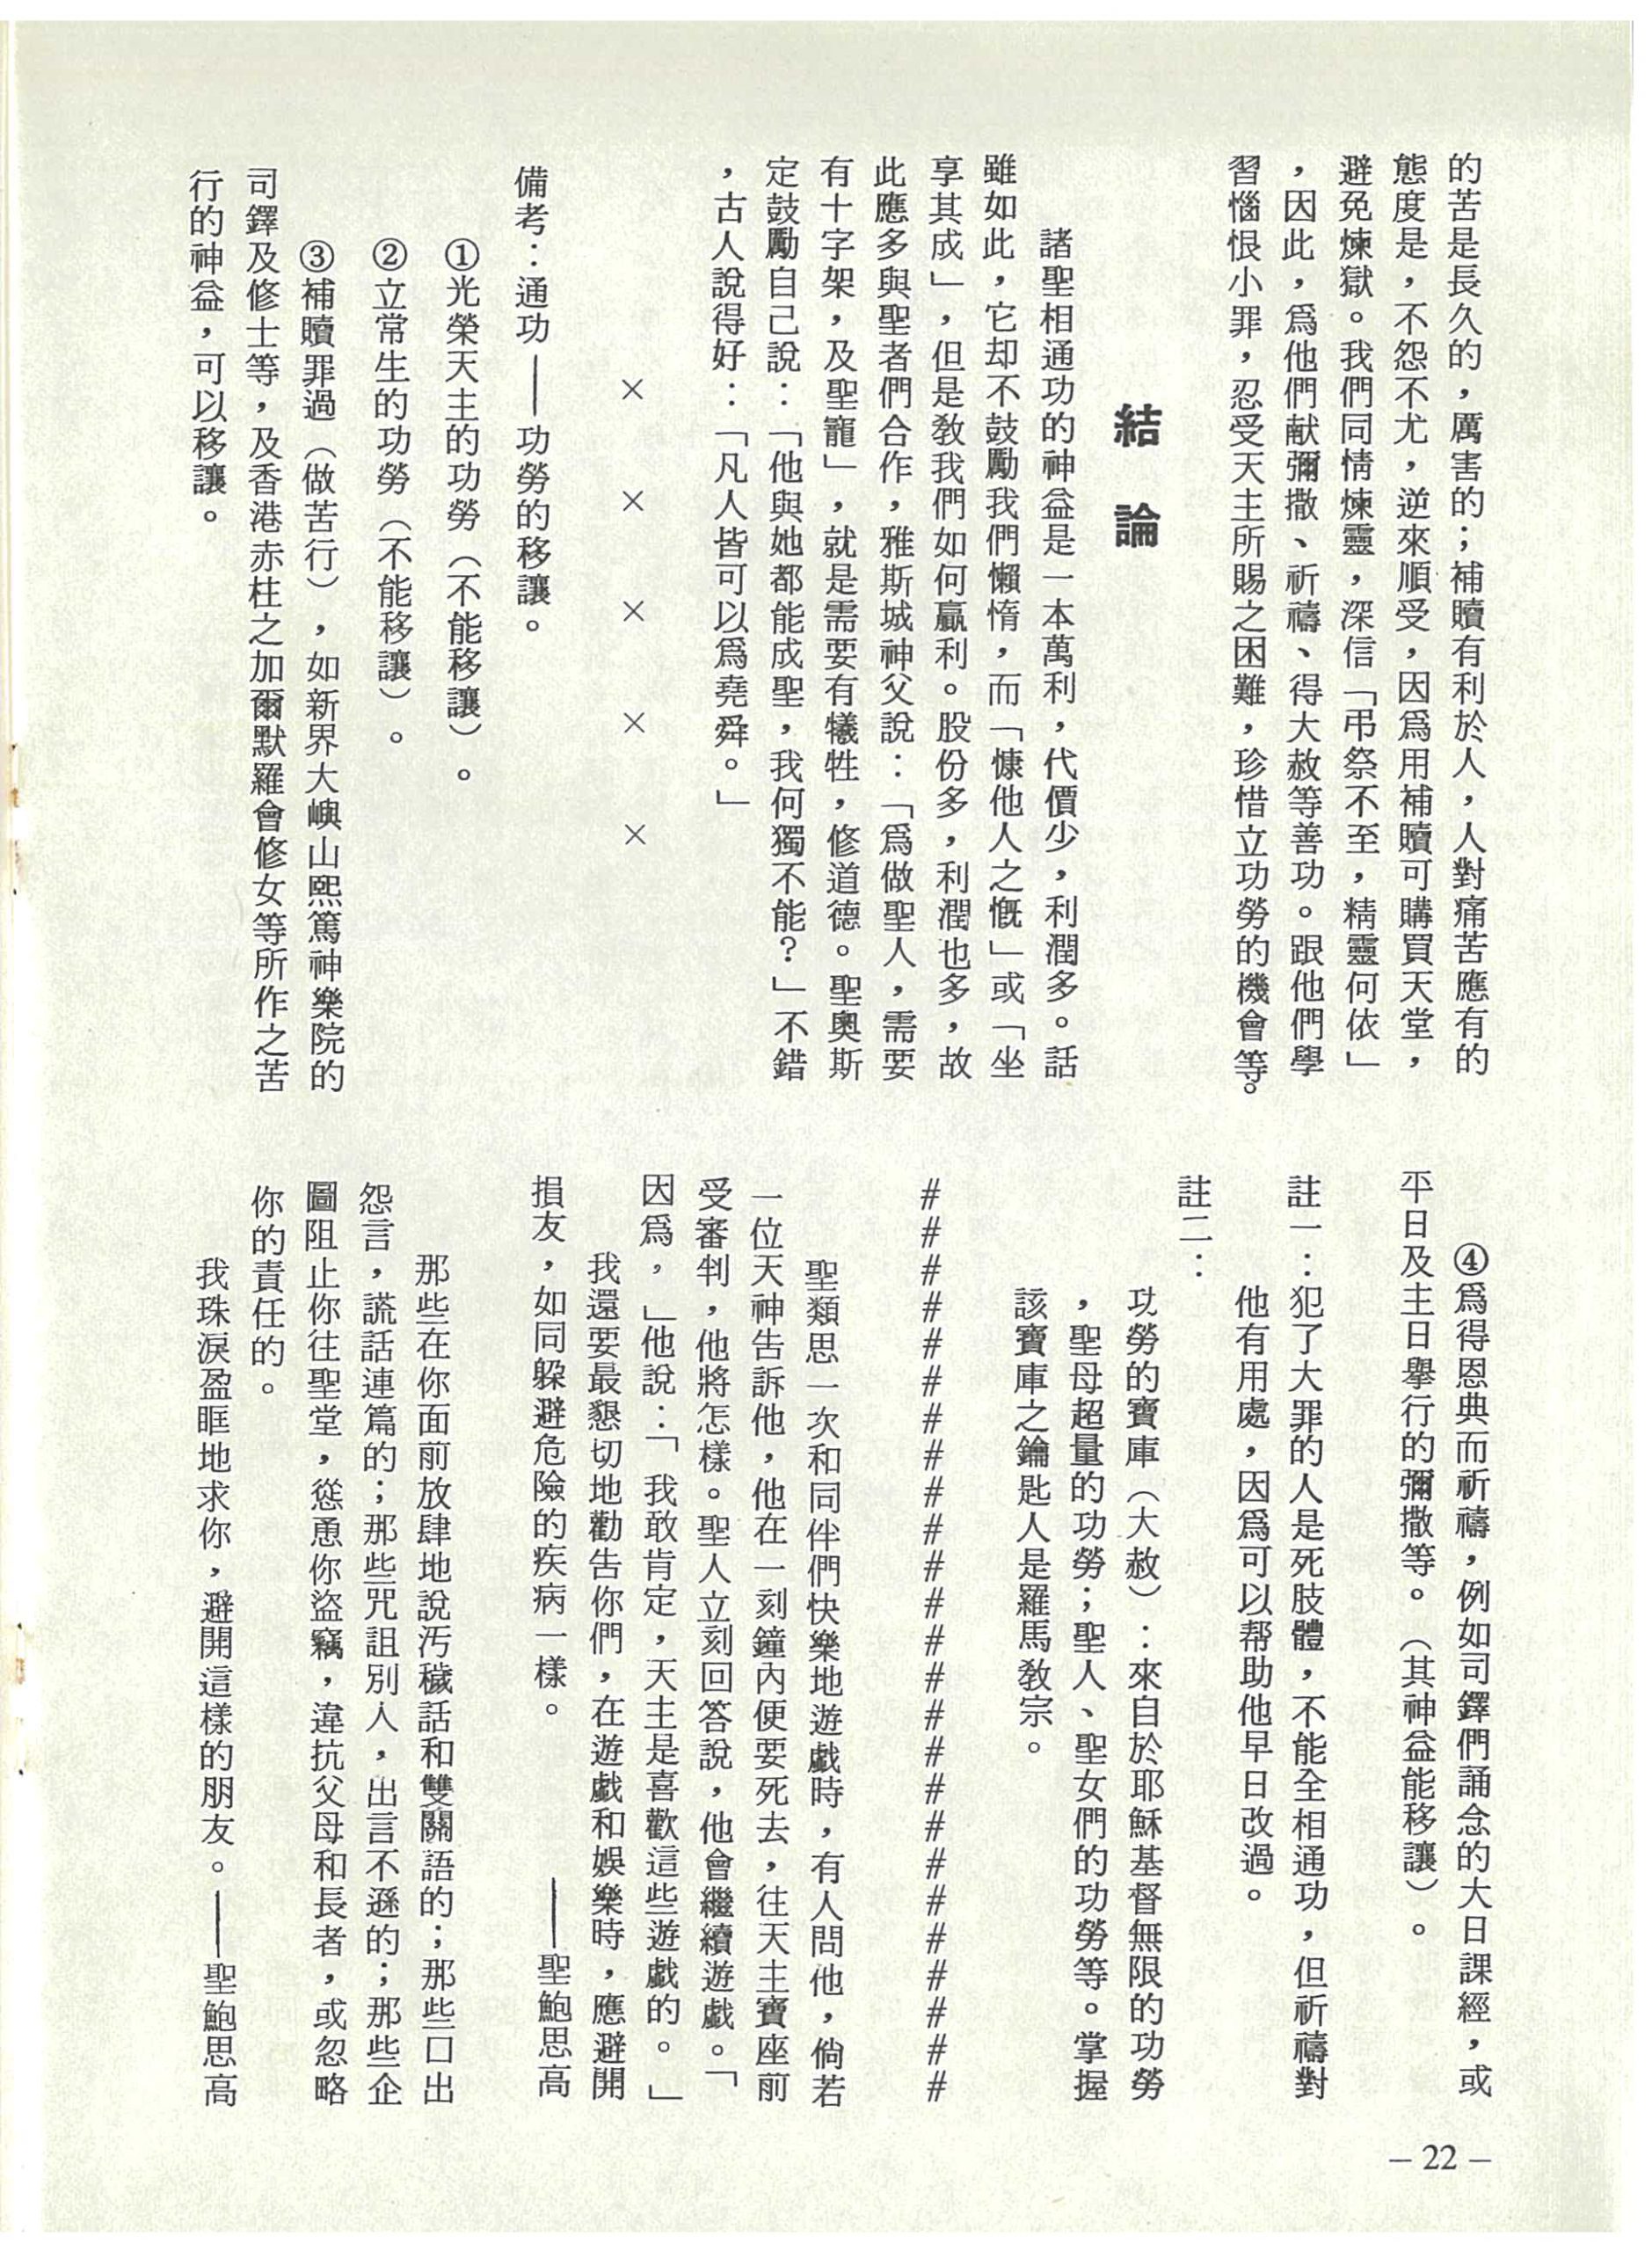 的苦是長久的，厲害的；補贖有利於人，人對痛苦應有的
態度是，不怨不尤，逆來順受，因爲用補贖可購買天堂，
避免煉獄。我們同情煉靈，深信「弔祭不至，精靈何依」
，因此，爲他們献彌撒、祈禱、得大赦等善功。跟他們學
習惱恨小罪，忍受天主所賜之困難，珍惜立功勞的機會等。
結論
諸聖相通功的神益是一本萬利，代價少，利潤多。話
雖如此，它却不鼓勵我們懶惰，而「慷他人之慨」或「坐
享其成」，但是敎我們如何贏利。股份多，利潤也多，故
此應多與聖者們合作，雅斯城神父說：「爲做聖人，需要
有十字架，及聖寵」，就是需要有犧牲，修道德。聖奧斯
定鼓勵自己說：「他與她都能成聖，我何獨不能？」不錯
，古人說得好：「凡人皆可以爲堯舜。」
×　×　×　×　×
備考：通功——功勞的移讓。
①光榮天主的功勞（不能移讓）。
②立常生的功勞（不能移讓）。
③補贖罪過（做苦行），如新界大嶼山熙篤神樂院的
司鐸及修士等，及香港赤柱之加爾默羅會修女等所作之苦
行的神益，可以移讓。
④爲得恩典而祈禱，例如司鐸們誦念的大日課經，或
平日及主日舉行的彌撒等。（其神益能移讓）。
註一：犯了大罪的人是死肢體，不能全相通功，但祈禱對
他有用處，因爲可以帮助他早日改過。
註二：
功勞的寶庫（大赦）：來自於耶穌基督無限的功勞
，聖母超量的功勞；聖人、聖女們的功勞等。掌握
該寶庫之鑰匙人是羅馬敎宗。
#########################
聖類思一次和同伴們快樂地遊戲時，有人問他，倘若
一位天神告訴他，他在一刻鐘內便要死去，往天主寶座前
受審判，他將怎樣。聖人立刻回答說，他會繼續遊戲。「
因爲，」他說：「我敢肯定，天主是喜歡這些遊戲的。」
我還要最懇切地勸告你們，在遊戲和娛樂時，應避開
損友，如同躱避危險的疾病一樣。——聖鮑思高
那些在你面前放肆地說汚穢話和雙關語的；那些口出
怨言，謊話連篇的；那些咒詛別人，出言不遜的；那些企
圖阻止你往聖堂，慫恿你盜竊，違抗父母和長者，或忽略
你的責任的。
我珠淚盈眶地求你，避開這樣的朋友。——聖鮑思高
— 22 —